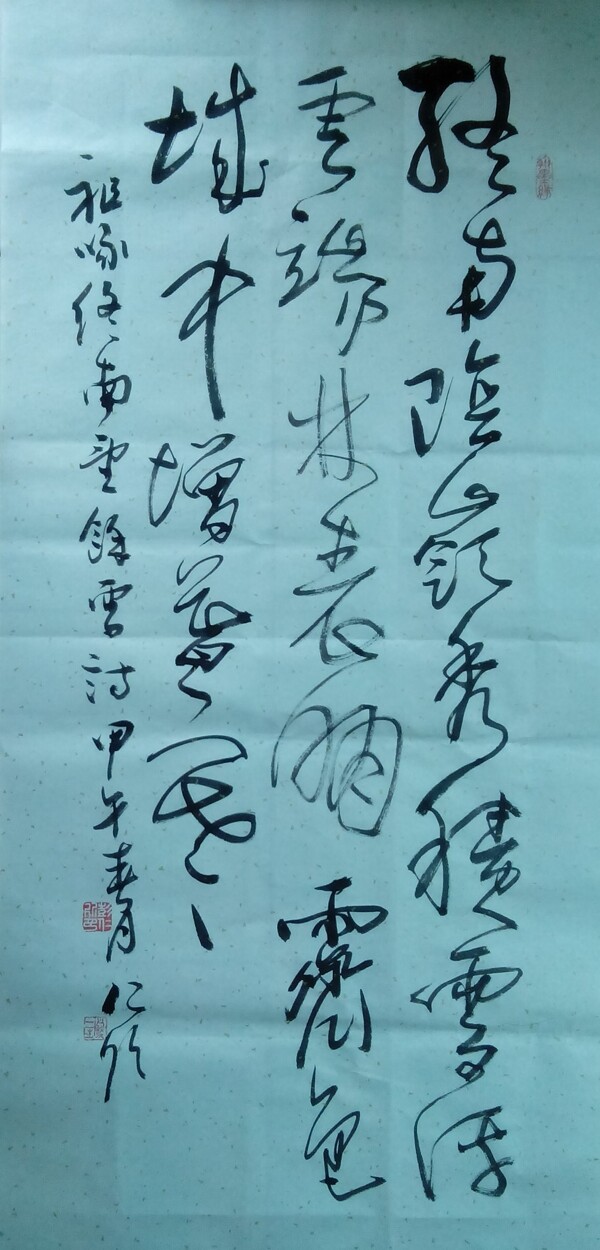 終南陰嶺秀積雪浮
雲端林表明霽色
城中增暮寒
祖咏终南望餘雪詩甲午春月仁